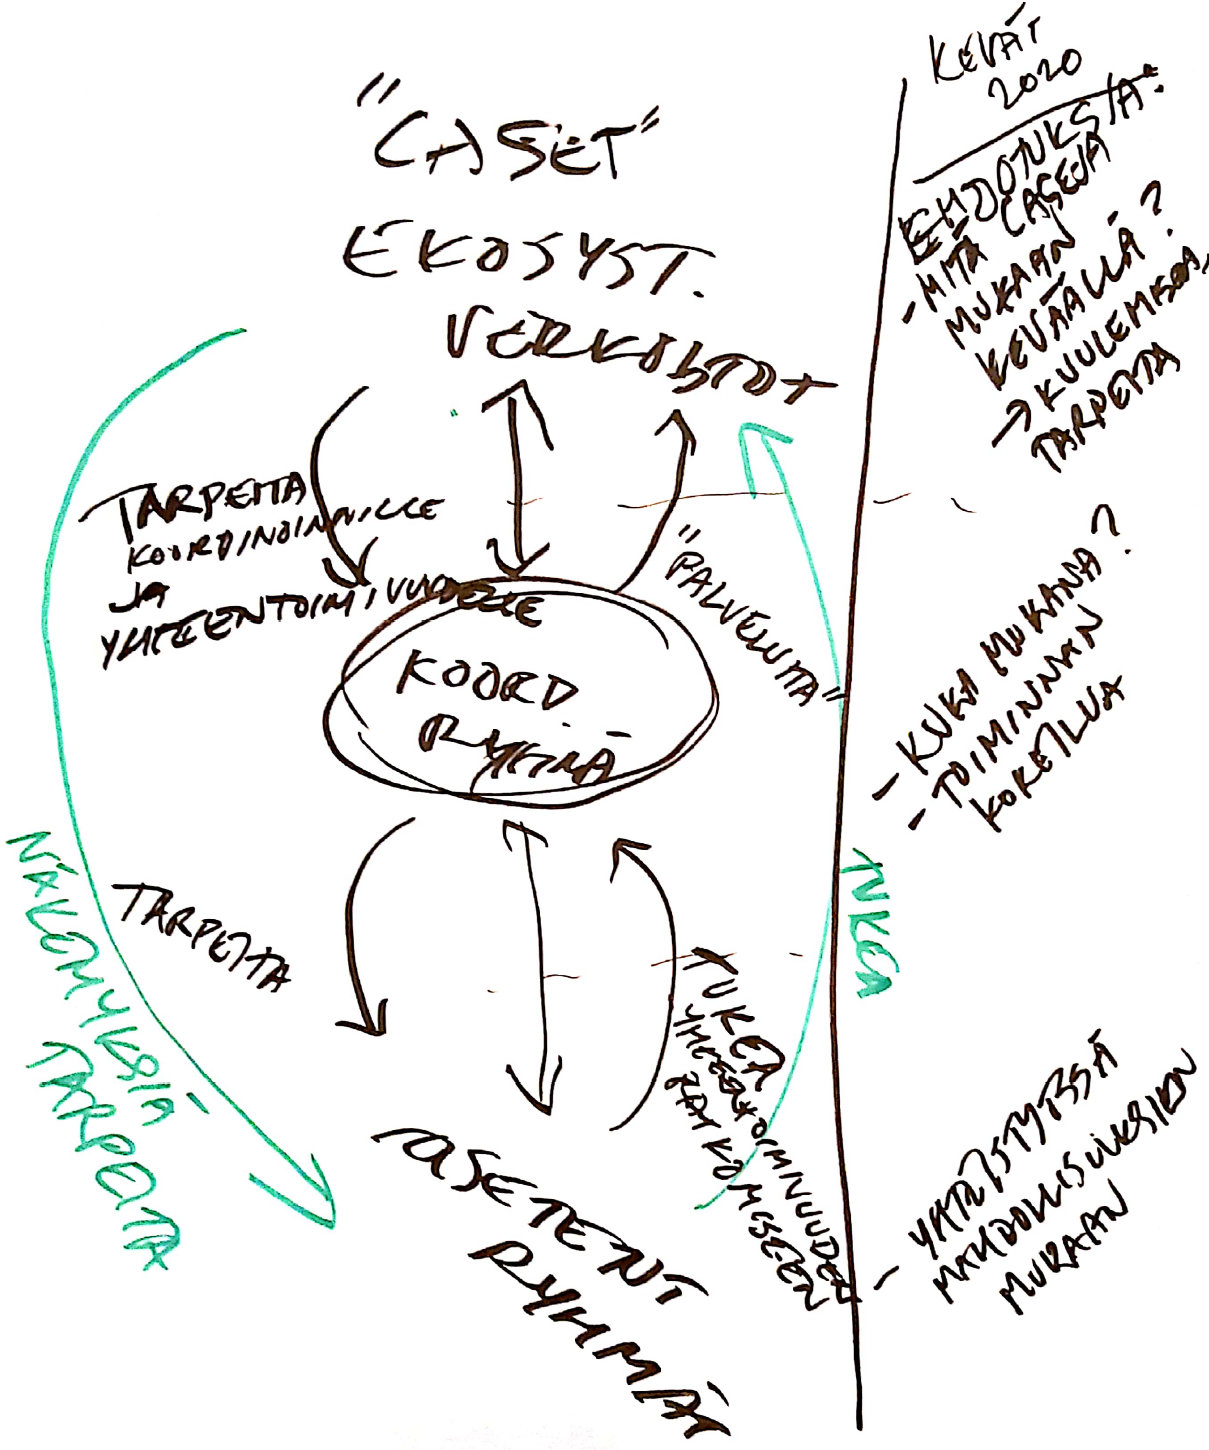 "CASET"
EKOSYST.
VERKOSTOT
TARPEITA
KOORDINOINNILLE
JA
YHTEENTOIMIVUUDELLE
"PALVELUITA"
KOORD.
RYHMÄ
TARPEITA
TUKEA
YHTEENTOIMIVUUDEN
RATKOMISEEN
ASETENT
RYHMÄT
NÄKEMYKSIÄ
TARPEITA
TUKEA
KEVÄT
2020
EHDOTUKSIA:
- MITÄ CASEJA
MUKAAN
KEVÄÄLLÄ?
→ KUULEMISIA,
TARPEITA
- KUKA MUKANA?
- TOIMINNAN
KOKEILUA
- YHTEISTYÖSSÄ
MAHDOLLISUUKSIEN
MUKAAN